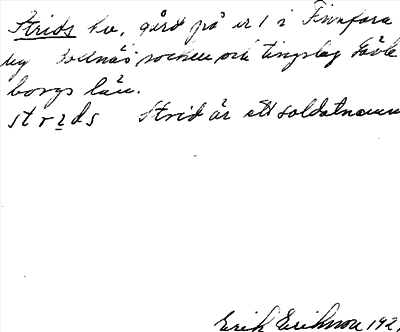 Strids hv. gård på nr 1 i Finnfara
by Bollnäs socken och tingslag Gävle
borgs län.
strids Strid är ett soldatnamn
Erik Erikson 192